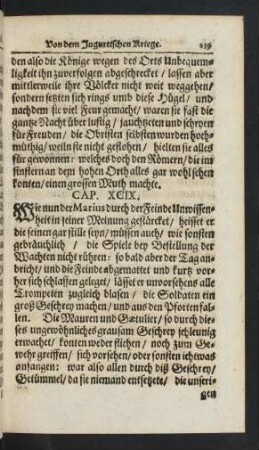 Von dem Jugurtischen Kriege. 239
den also die Könige wegen des Orts Unbequem-
ligkeit ihn zuverfolgen abgeschrecket / lassen aber
mittlerweile ihre Völcker nicht weit weggehen/
sondern setzten sich rings umb diese Hügel/ und-
nachdem sie viel Feur gemacht/ waren sie fast die
gantze Nacht über lustig / jauchzeten und schryen
für Freuden/ die Obristen selbsten wurden hoch-
müthig/ weiln sie nicht geflohen/ hielten sie alles
für gewonnen: welches doch den Römern/ die im
finstern an dem hohen Orth alles gar wohl sehen
konten/ einen grossen Muth machte.
CAP. XCIX.
Wie nun der Marius durch der Feinde Unwissen-
heit in seiner Meinung gestärcket/ heisset er
die seinen gar still seyn/ müssen auch/ wie sonsten
gebräuchlich / die Spiele bey Bestellung der
Wachten nicht rühren: so bald aber der Tag an-
bricht/ und die Feinde abgemattet und kurtz vor-
her sich schlassen geleget/ lässet er unvorsehens alle
Trompeten zugleich blasen / die Soldaten ein
groß Geschrey machen/ und aus den Pforten fal-
len. Die Mauren und Gætulier/ so durch die-
ses ungewöhnliches grausam Geschrey schleunig
erwachet/ konten weder fliehen/ noch zum Ge-
wehr greiffen/ sich vorsehen/ oder sonsten ichtwas
anfangen: war also allen durch diß Geschrey/
Getümmel/ da sie niemand entsetzte/ die unseri-
gen